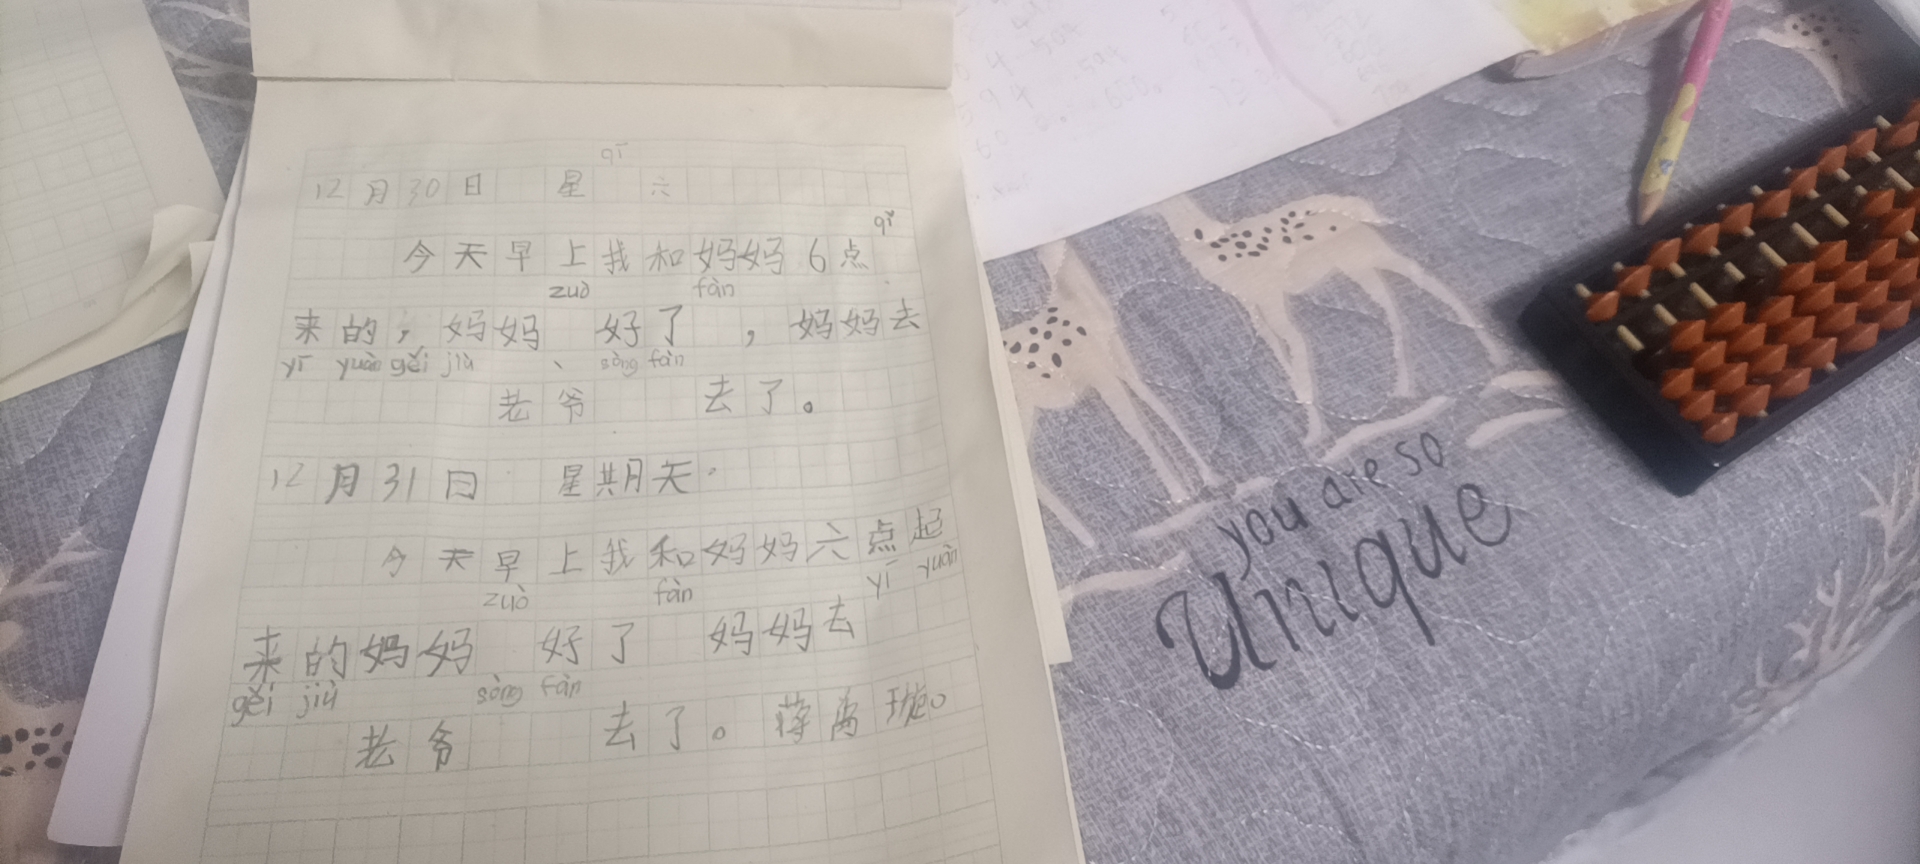 qī
12月30日 星 六
qǐ
今天早上我和妈妈6点
zuò fàn
来的，妈妈 好了 ，妈妈去
yī yuàn gěi jiù 、 sòng fàn
老爷 去了。
12月31日 星期天.
今天早上我和妈妈六点起
zuò fàn yī yuàn
来的妈妈 好了 妈妈去
gěi jiù sòng fàn
老爷 去了。
you are so
Unique